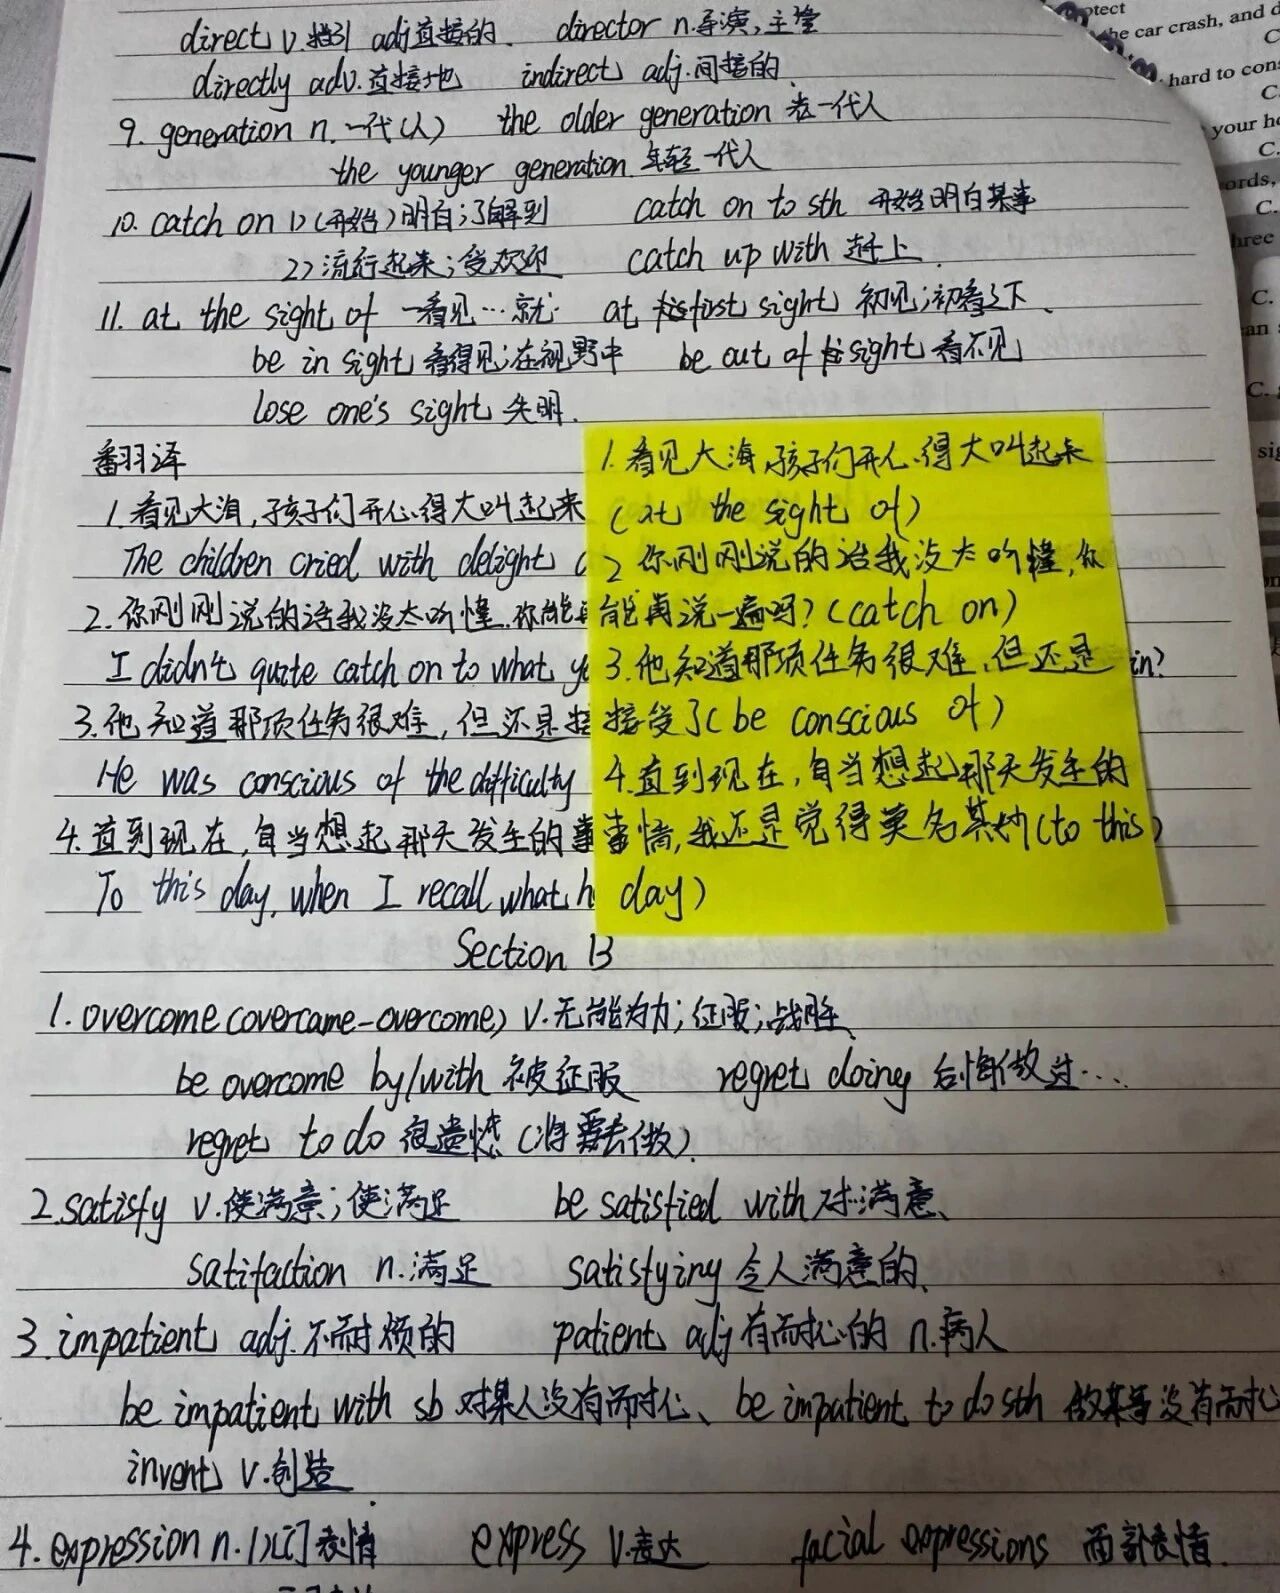 direct v.指引 adj直接的. director n.导演,主管
directly adv.直接地 indirect adj.间接的
9. generation n.一代(人) the older generation 老一代人
the younger generation 年轻一代人
10. catch on 1>(开始)明白;了解到 catch on to sth 开始明白某事
2>流行起来;受欢迎 catch up with 赶上.
11. at the sight of 一看见…就 at first sight 初见;初看之下、
be in sight 看得见;在视野中 be out of sight 看不见
lose one's sight 失明.
翻译
1.看见大海,孩子们开心得大叫起来
The children cried with delight
2.你刚刚说的话我没太听懂,你能再
I didn't quite catch on to what y in?
3.他知道那项任务很难,但还是接
He was conscious of the difficulty
4.直到现在,每当想起那天发生的事
To this day, when I recall what h
1.看见大海,孩子们开心得大叫起来
(at the sight of)
2 你刚刚说的话我没太听懂,你
能再说一遍吗?(catch on)
3.他知道那项任务很难,但还是
接受了(be conscious of)
4.直到现在,每当想起那天发生的
事情,我还是觉得莫名其妙(to this
day)
Section B
1.overcome(overcame-overcome) v.无能为力;征服;战胜、
be overcome by/with 被征服 regret doing 后悔做过…
regret to do 很遗憾(将要去做).
2.satisfy v.使满意;使满足 be satisfied with 对…满意、
satifaction n.满足 satisfying 令人满意的、
3.impatient adj.不耐烦的 patient adj有耐心的 n.病人
be impatient with sb 对某人没有耐心、be impatient to do sth 做某事没有耐心
invent v.创造.
4.expression n.1>[C]表情 express v.表达 facial expressions 面部表情.
otect
the car crash, and d
C
hard to con
C.
your h
C.
ords,
C.
hree
C.
an
C.